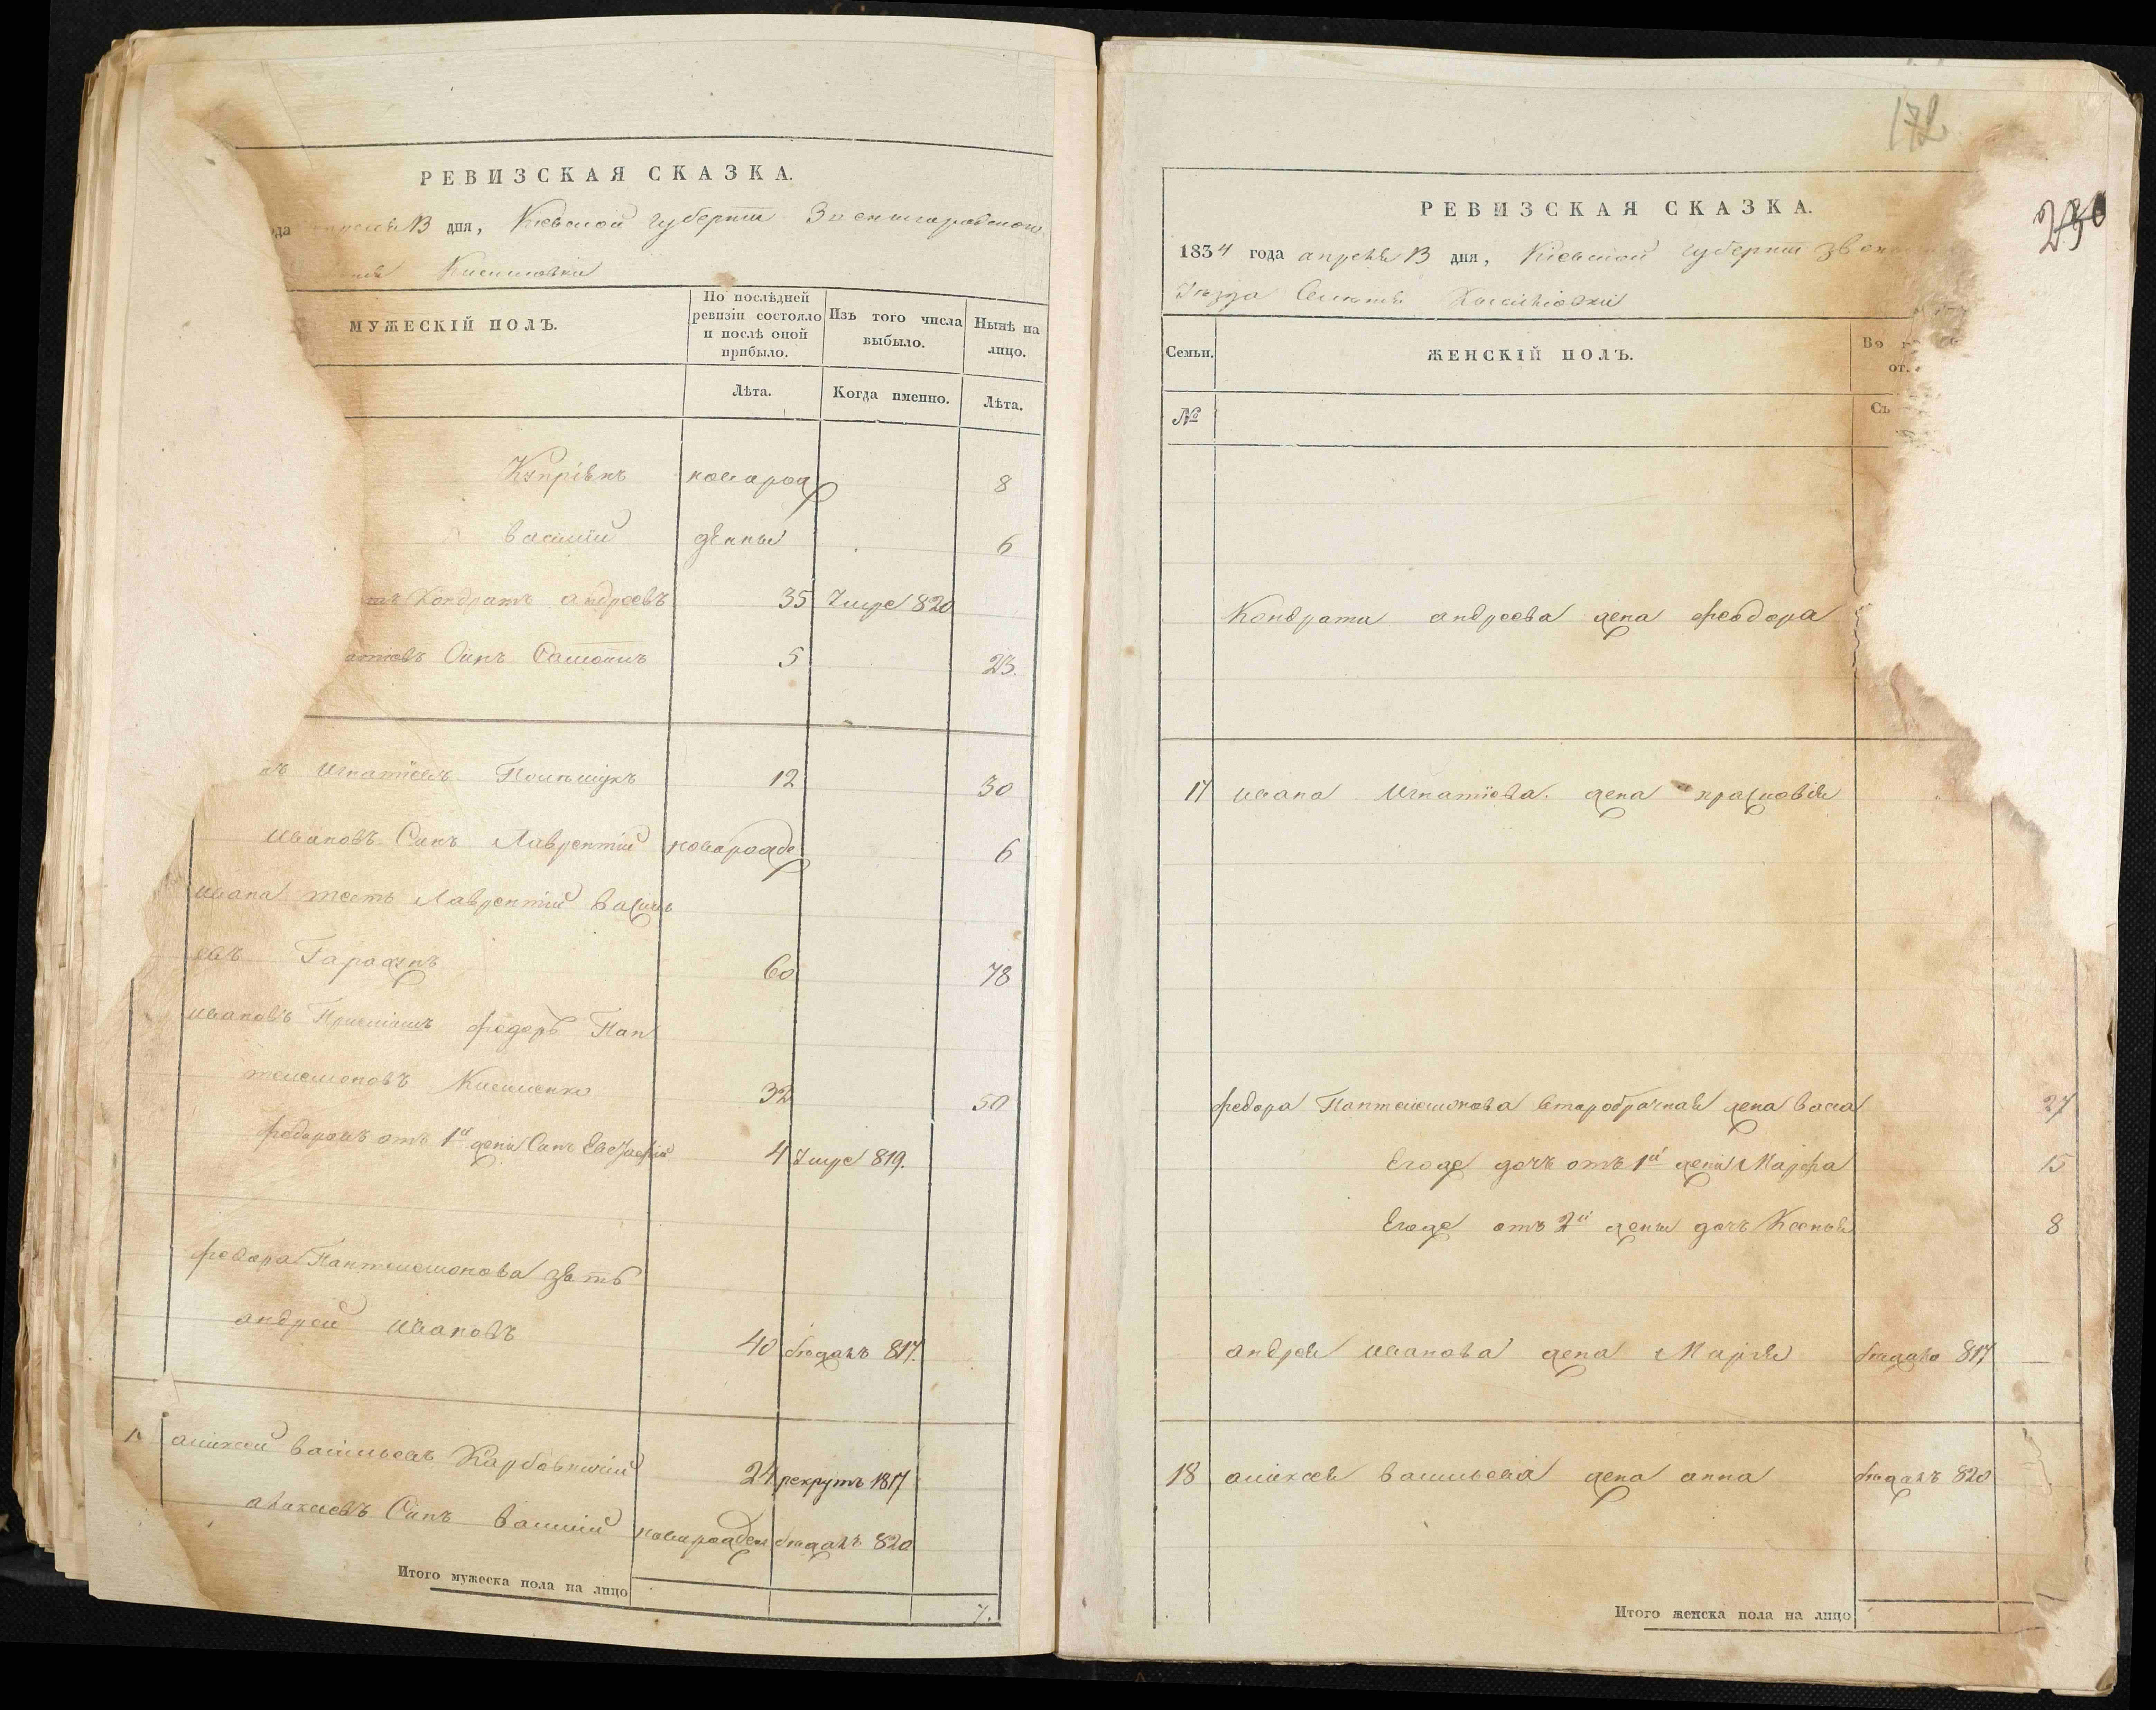 РЕВИЗСКАЯ СКАЗКА.
дня, Кіевской губерніи Звенигородского
МУЖЕСКІЙ ПОЛЪ.
По послѣдней ревизіи состояло и послѣ оной прибыло.
Изъ того числа выбыло.
Нынѣ на лицо.
Лѣта.
Когда именно.
Лѣта.
Купріянъ новорож 8
василій денны 6
Кондратъ андреевъ 35 Умре 820
Синъ 5 23.
Игнатіевъ Полѣщукъ 12 30
Ивановъ Синъ Лаврентій новорожде 6
Ивана тесть Лаврентій Василь
евъ 60 78
Ивановъ Пріемишъ федоръ Пан
телемоновъ Кисиленко 32 50
федоровъ отъ 1й жени Синъ 4 Умре 819.
федора Пантелемонова зять
андрей Ивановъ 40 бежалъ 817.
алексей васильевъ 24 рекрутъ 1817
алексеевъ Синъ василій новорожден бежалъ 820
Итого мужеска пола на лицо 7.
172
230
РЕВИЗСКАЯ СКАЗКА.
1834 года апреля 13 дня, Кіевской губерніи
Уезда
Семьи.
ЖЕНСКІЙ ПОЛЪ.
№
Кондрата андреева жена феодора
17 Ивана Игнатіева жена прасковія
федора Пантелемонова второбрачная жена васа 27
Егоже дочь отъ 1й жени Марфа 15
Егоже отъ 2й жены дочь Ксенія 8
андрея Иванова жена Марія бежала 817 —
18 алексея васильева жена анна бежалъ 820
Итого женска пола на лицо